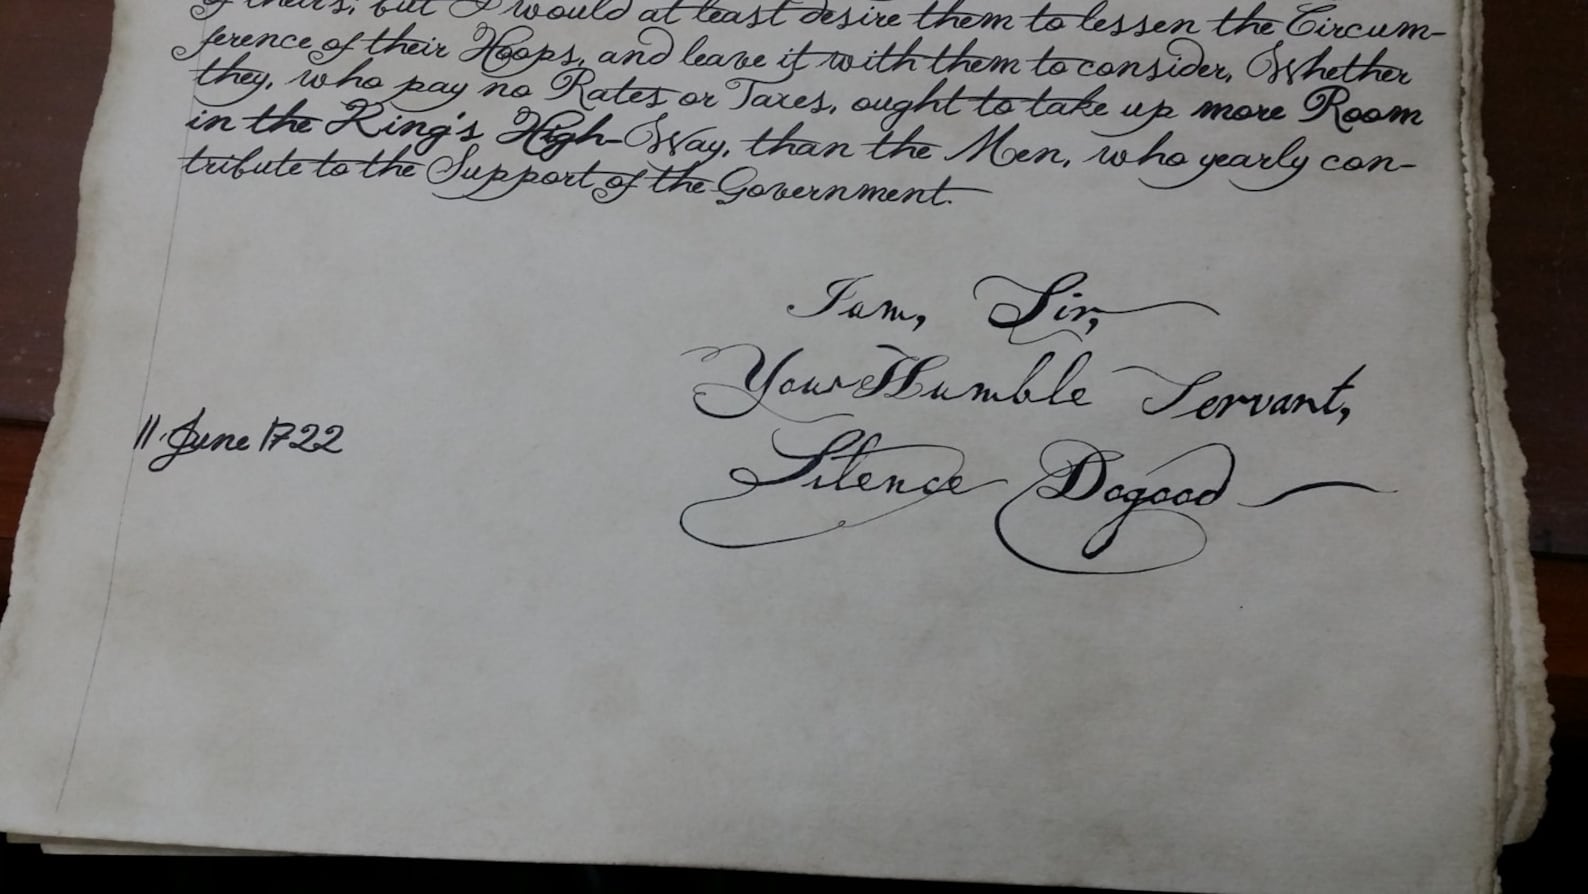 of theirs; but I would at least desire them to lessen the Circum-
ference of their Hoops, and leave it with them to consider, Whether
they, who pay no Rates or Taxes, ought to take up more Room
in the King's High-Way, than the Men, who yearly con-
tribute to the Support of the Government.
I am, Sir,
Your Humble Servant,
11 June 1722
Silence Dogood